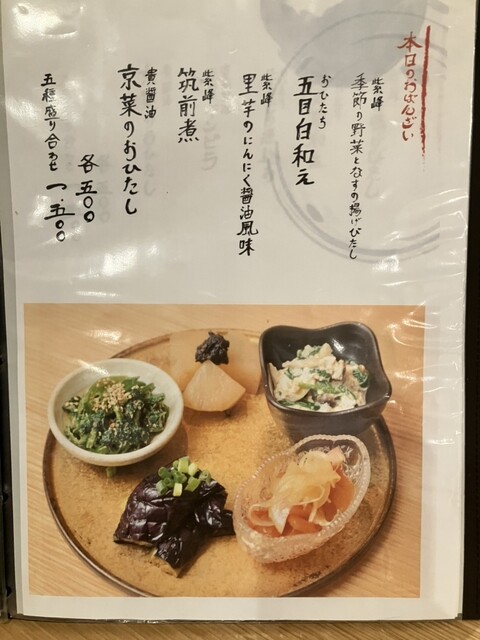 本日のおばんざい
紫峰
季節の野菜となすの揚げびたし
おひたち
五目白和え
紫峰
里芋のにんにく醤油風味
紫峰
筑前煮
貴醤油
京菜のおひたし
各五〇〇
五種盛り合わせ 一、五〇〇